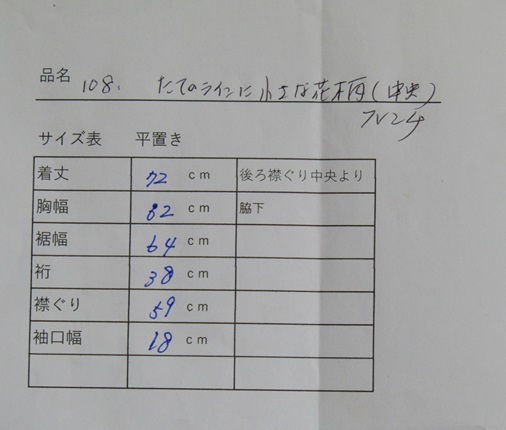 品名 108. たてのラインに小さな花柄(中央)
フレンチ
サイズ表 平置き
着丈 72 cm 後ろ襟ぐり中央より
胸幅 62 cm 脇下
裾幅 64 cm
裄 38 cm
襟ぐり 59 cm
袖口幅 18 cm